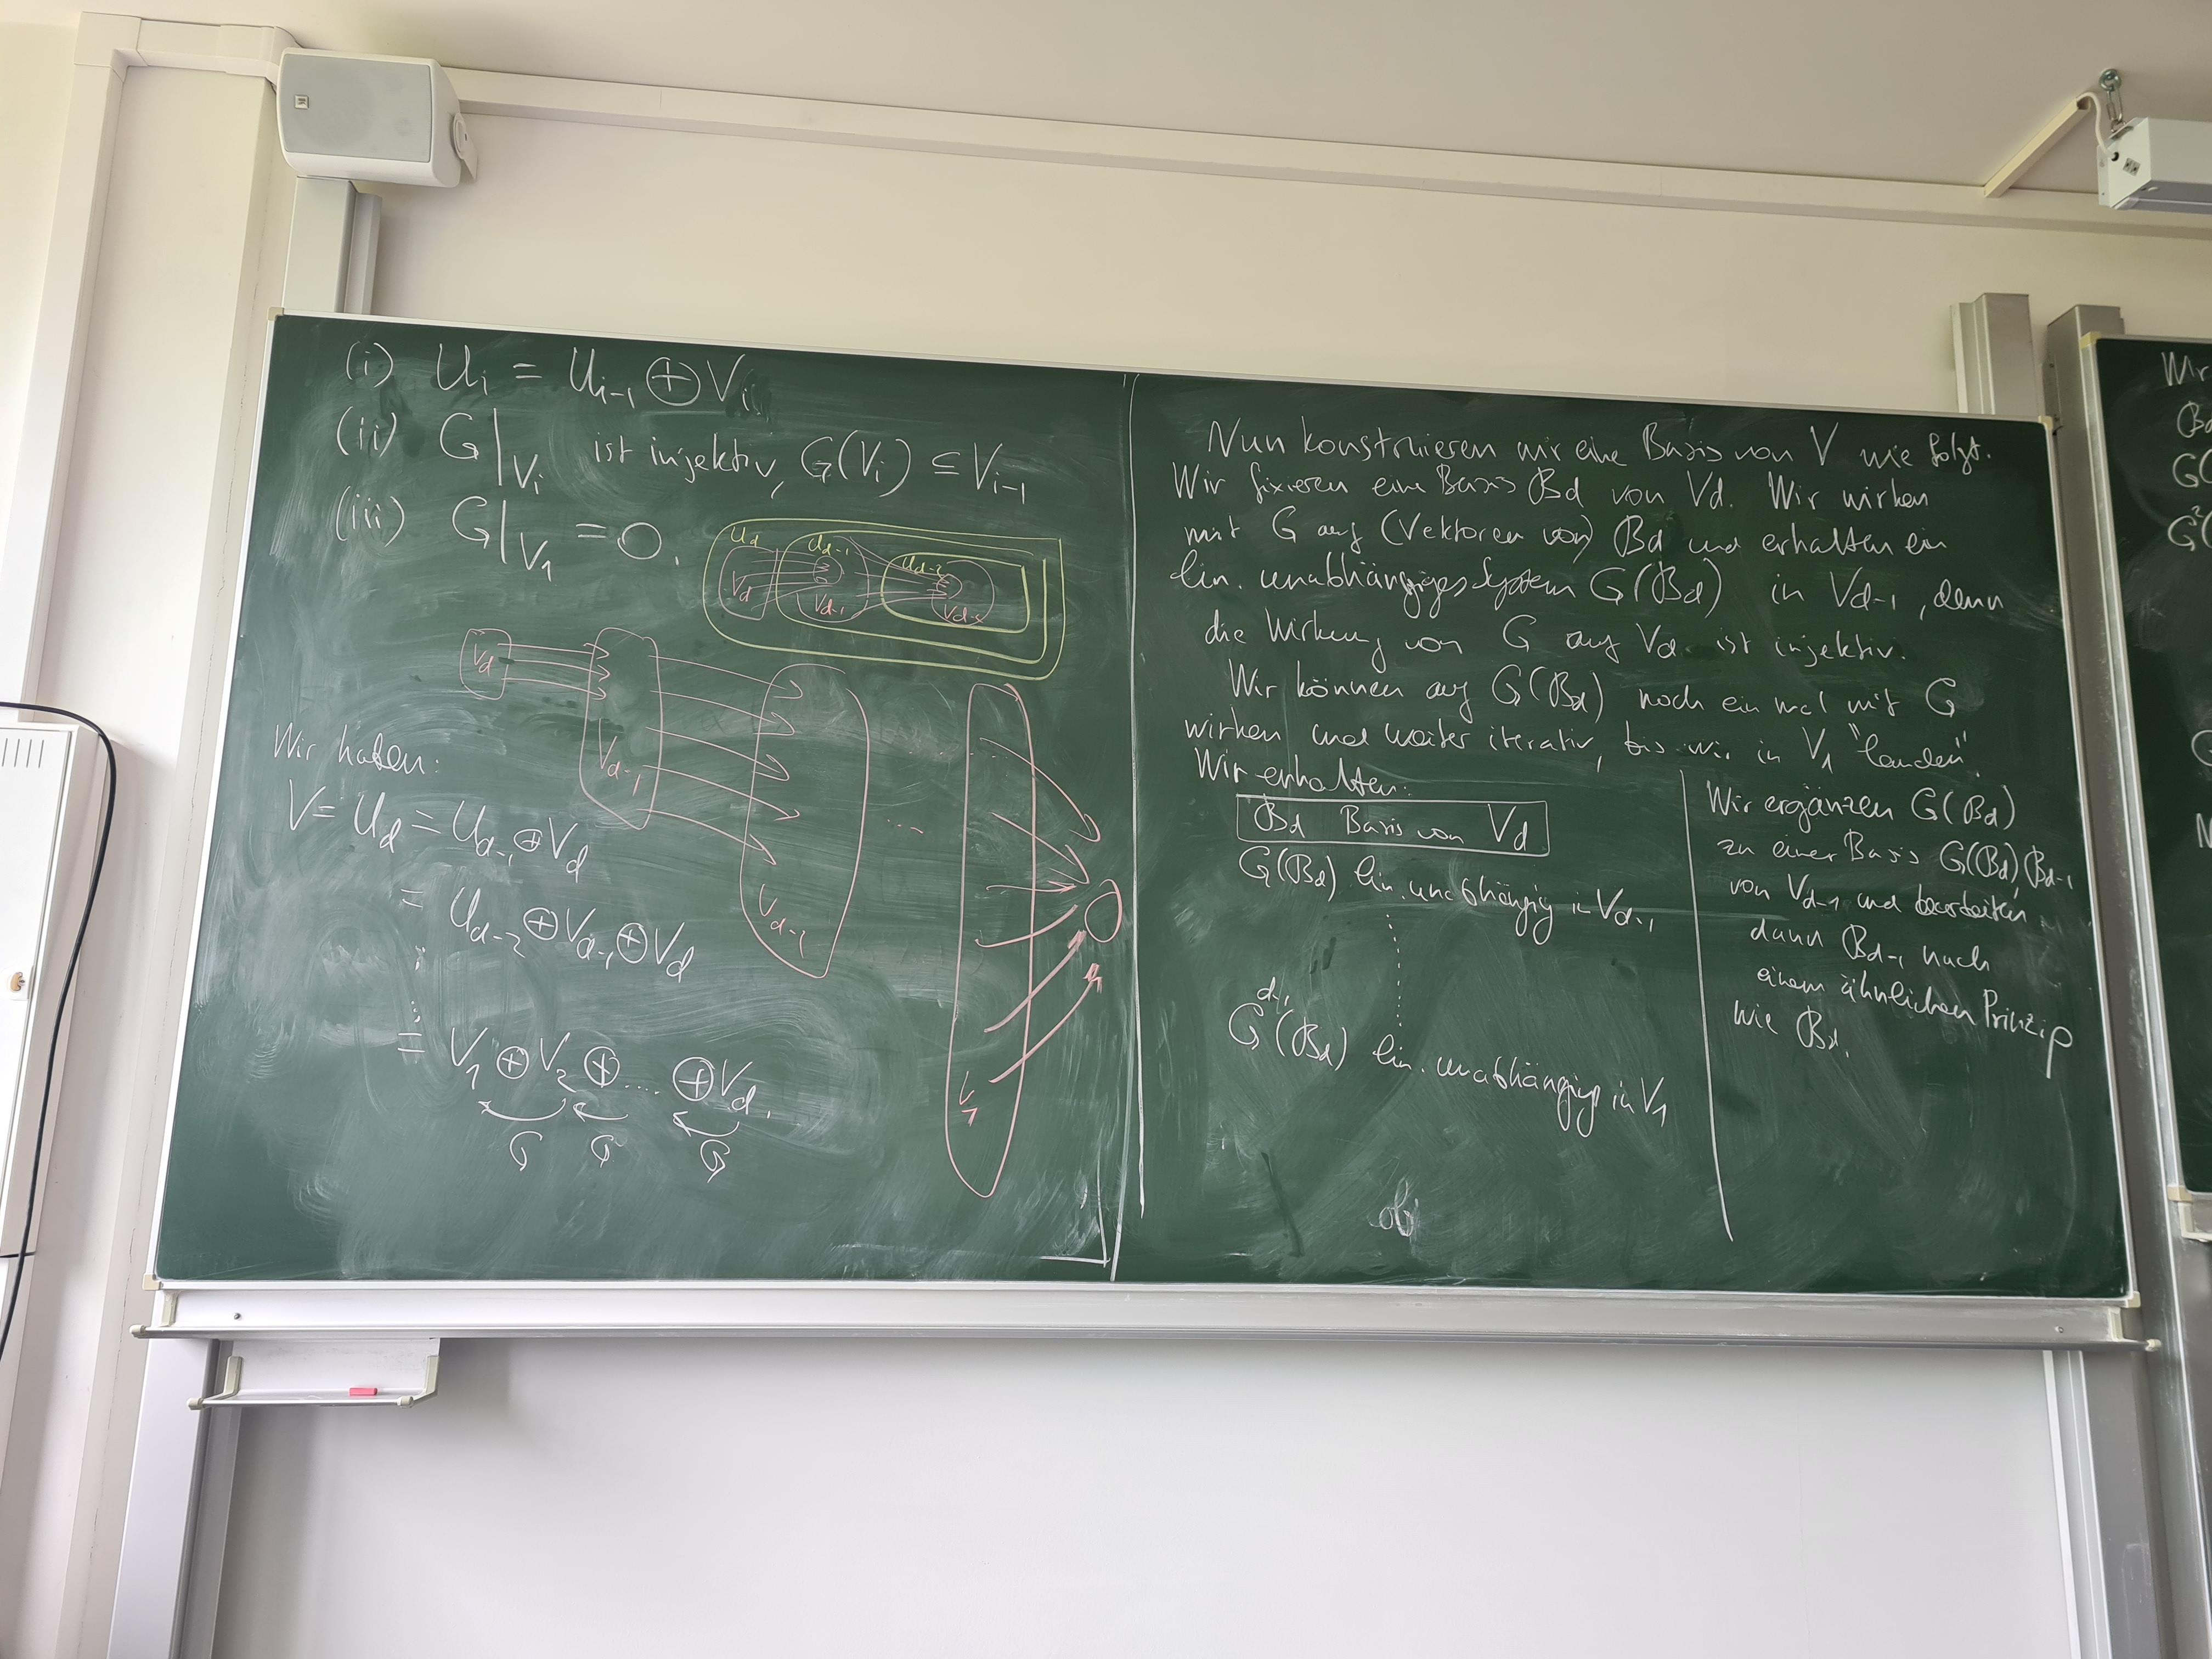 (i) U_i = U_{i-1} ⊕ V_i
(ii) G|_{V_i} ist injektiv, G(V_i) ⊆ V_{i-1}
(iii) G|_{V_1} = 0.
U_d U_{d-1} U_{d-2}
V_d V_{d-1} V_{d-2}
V_d
V_{d-1}
V_{d-2}
V_1
0
Wir haben:
V = U_d = U_{d-1} ⊕ V_d
= U_{d-2} ⊕ V_{d-1} ⊕ V_d
⋮
= V_1 ⊕ V_2 ⊕ .... ⊕ V_d.
G G G
Nun konstruieren wir eine Basis von V wie folgt.
Wir fixieren eine Basis B_d von V_d. Wir wirken
mit G auf (Vektoren von) B_d und erhalten ein
lin. unabhängiges System G(B_d) in V_{d-1}, denn
die Wirkung von G auf V_d ist injektiv.
Wir können auf G(B_d) noch ein mal mit G
wirken und weiter iterativ, bis wir in V_1 "landen".
Wir erhalten:
B_d Basis von V_d
G(B_d) lin. unabhängig in V_{d-1}
G^{d-1}(B_d) lin. unabhängig in V_1
Wir ergänzen G(B_d)
zu einer Basis G(B_d), B_{d-1}
von V_{d-1} und bearbeiten
dann B_{d-1} nach
einem ähnlichen Prinzip
wie B_d.
Wir
B_d
G(
G²(